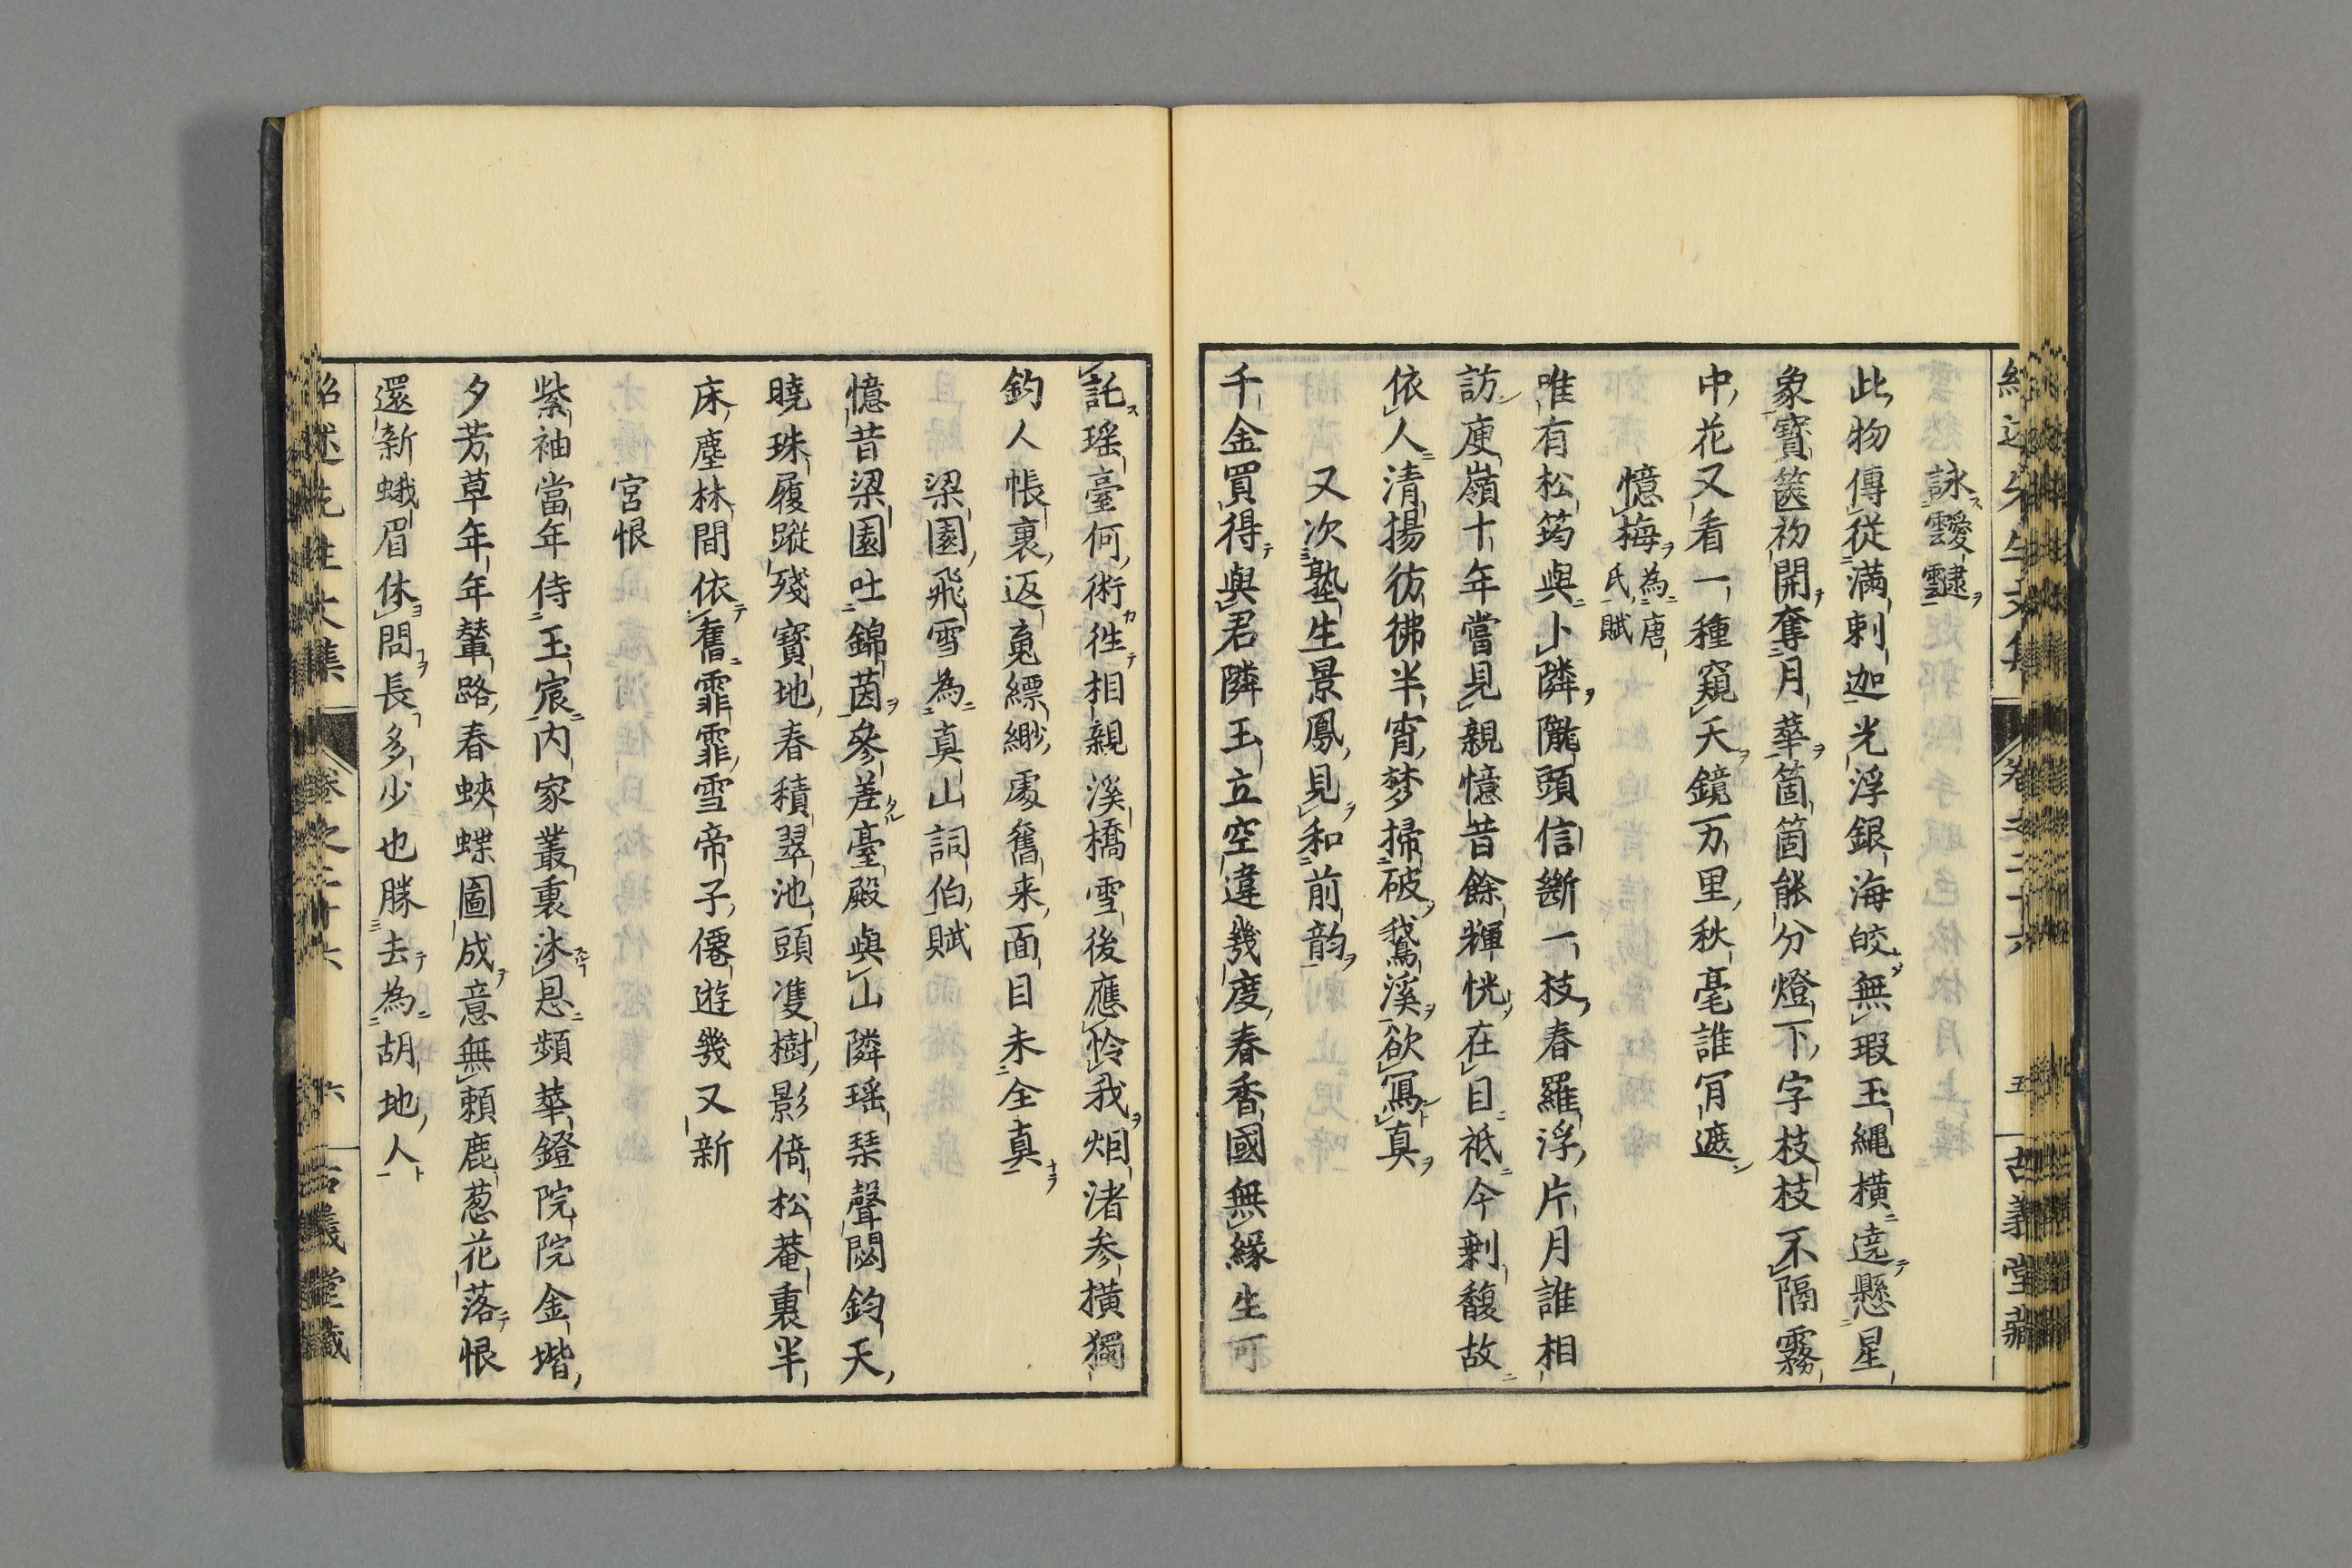 詠靉靆
此物傳從滿剌迦光浮銀海皎無瑕玉繩橫遶懸星
象寶篋初開奪月華箇箇能分燈下字枝枝不隔霧
中花又看一種窺天鏡万里秋毫誰肎遮
憶梅為唐氏賦
唯有松筠與卜隣隴頭信斷一枝春羅浮片月誰相
訪庾嶺十年嘗見親憶昔餘輝恍在目祗今剩馥故
依人清揚彷彿半宵梦掃破鵞溪欲寫真
又次塾生景鳳見和前韵
千金買得與君隣玉立空違幾度春香國無緣生可
託瑶臺何術徃相親溪橋雪後應怜我烟渚参橫獨
釣人帳裏返䰟縹緲處舊来面目未全真
梁園飛雪為真山詞伯賦
憶昔梁園吐錦茵參差臺殿與山隣瑶琹聲閟鈞天
曉珠履蹤殘寶地春積翠池頭隻樹影倚松菴裏半
床塵林間依舊霏霏雪帝子僊遊幾又新
宮恨
紫袖當年侍玉宸内家叢裏沐恩頻華鐙院院金堦
夕芳草年年輦路春蛺蝶圖成意無賴鹿葱花落恨
還新蛾眉休問長多少也勝去為胡地人
紹述先生文集
卷之二十六
五
古義堂藏
紹述先生文集
卷之二十六
六
古義堂藏